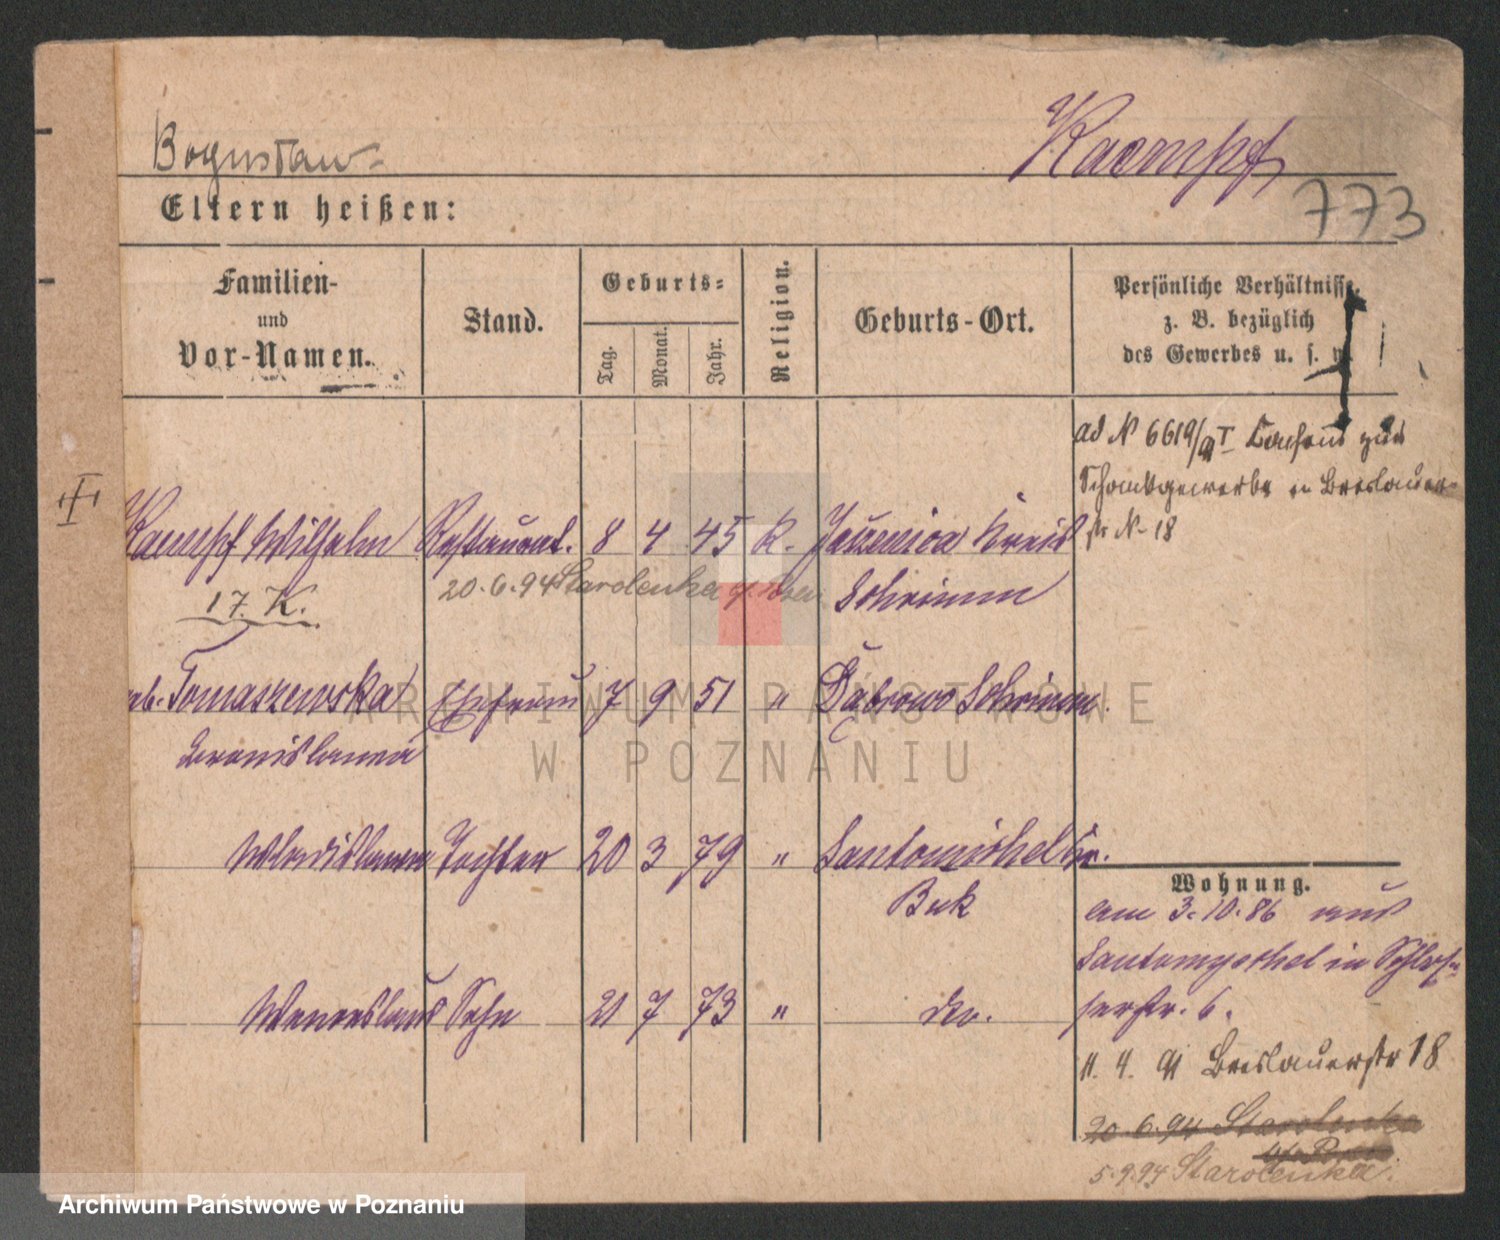 Bogusław
Kaempf
773
Eltern heißen:
Familien-
und
Vor-Namen.
Stand.
Geburts-
Tag.
Monat.
Jahr.
Religion.
Geburts-Ort.
Persönliche Verhältnisse,
z. B. bezüglich
des Gewerbes u. s. w.
ad N 6619/91 I Consens zum
Schankgewerbe in Breslauer-
str N. 18
Kaempf Wilhelm Restaurat. 8 4 45 K. Jaszenica Kreis
Schrimm
17. K.
20.6.94 Starolenka
geb. Tomaszewska Ehefrau 7 9 51 " Dąbrowo Schrimm.
Bronislawa
Wladislawa Tochter 20 3 79 " Santomischel Kr.
Buk
Wenceslaus Sohn 21 7 73 " do.
Wohnung.
am 3.10.86 aus
Santomyschel in Schlos-
serstr. 6.
11. 4. 91 Breslauerstr 18
20.6.94 Starolenka
5.9.94 Starolenka.
ARCHIWUM PAŃSTWOWE
W POZNANIU
Archiwum Państwowe w Poznaniu